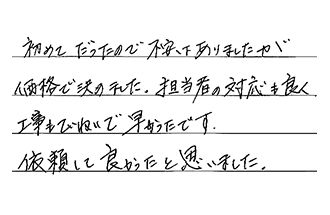 初めてだったので不安はありましたが
価格で決めました。担当者の対応も良く
工事もていねいで早かったです。
依頼して良かったと思いました。